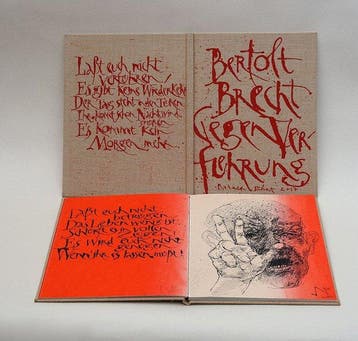 Laßt euch nicht
verführen!
Es gibt keine Wiederkehr
Der Tag steht in den Türen
Ihr könnt schon Nachtwind
Es kommt kein
Morgen mehr.
Bertolt
Brecht
Gegen Ver
führung
Laßt euch nicht
betrügen
Das Leben wenig ist
Schlürft es in vollen
Es wird euch nicht
genügen
Wenn ihr es lassen müßt!